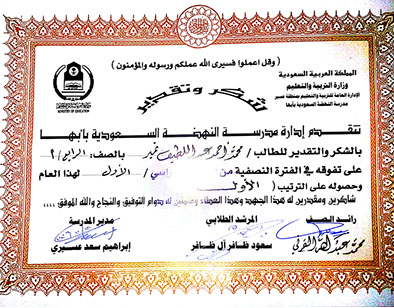 ( وقل اعملوا فسيرى الله عملكم ورسوله والمؤمنون )
المملكة العربية السعودية
وزارة التربية والتعليم
الإدارة العامة للتربية والتعليم بمنطقة عسير
مدرسة النهضة السعودية بأبها
MINISTRY OF EDUCATION
شكر وتقدير
تتقدم إدارة مدرسة النهضة السعودية بأبها
بالشكر والتقدير للطالب / محمد أحمد عبد اللطيف بالصف: الرابع / ٢
على تفوقه في الفترة النصفية من الأول لهذا العام
وحصوله على الترتيب ( الأول
شاكرين ومقدرين له هذا الجهد وهذا العطاء ومتمنين له دوام التوفيق والنجاح والله الموفق ,,,,
رائد الصف
المرشد الطلابي
مدير المدرسة
سعود ظافر آل ظافر
إبراهيم سعد عسيري